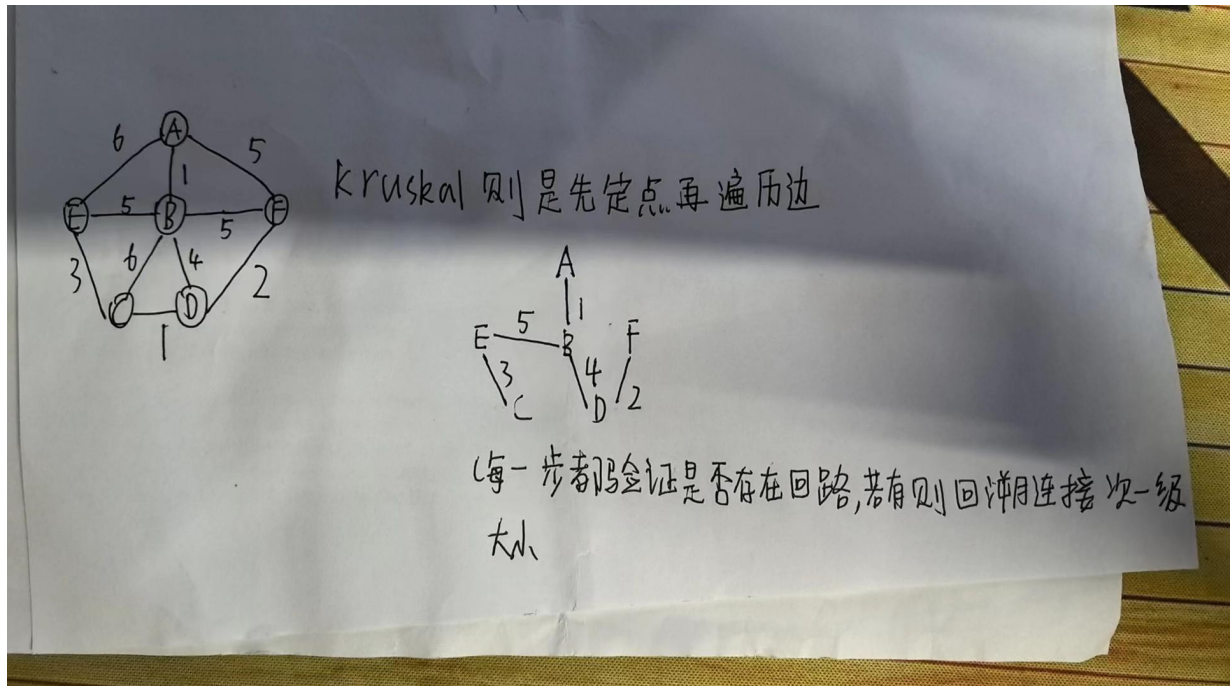 A
6
5
1
E
5
B
5
F
3
6
4
2
C
D
1
Kruskal 则是先定点再遍历边
A
1
E
5
B
F
3
4
2
C
D
(每一步都验证是否存在回路,若有则回溯连接次一级
大小